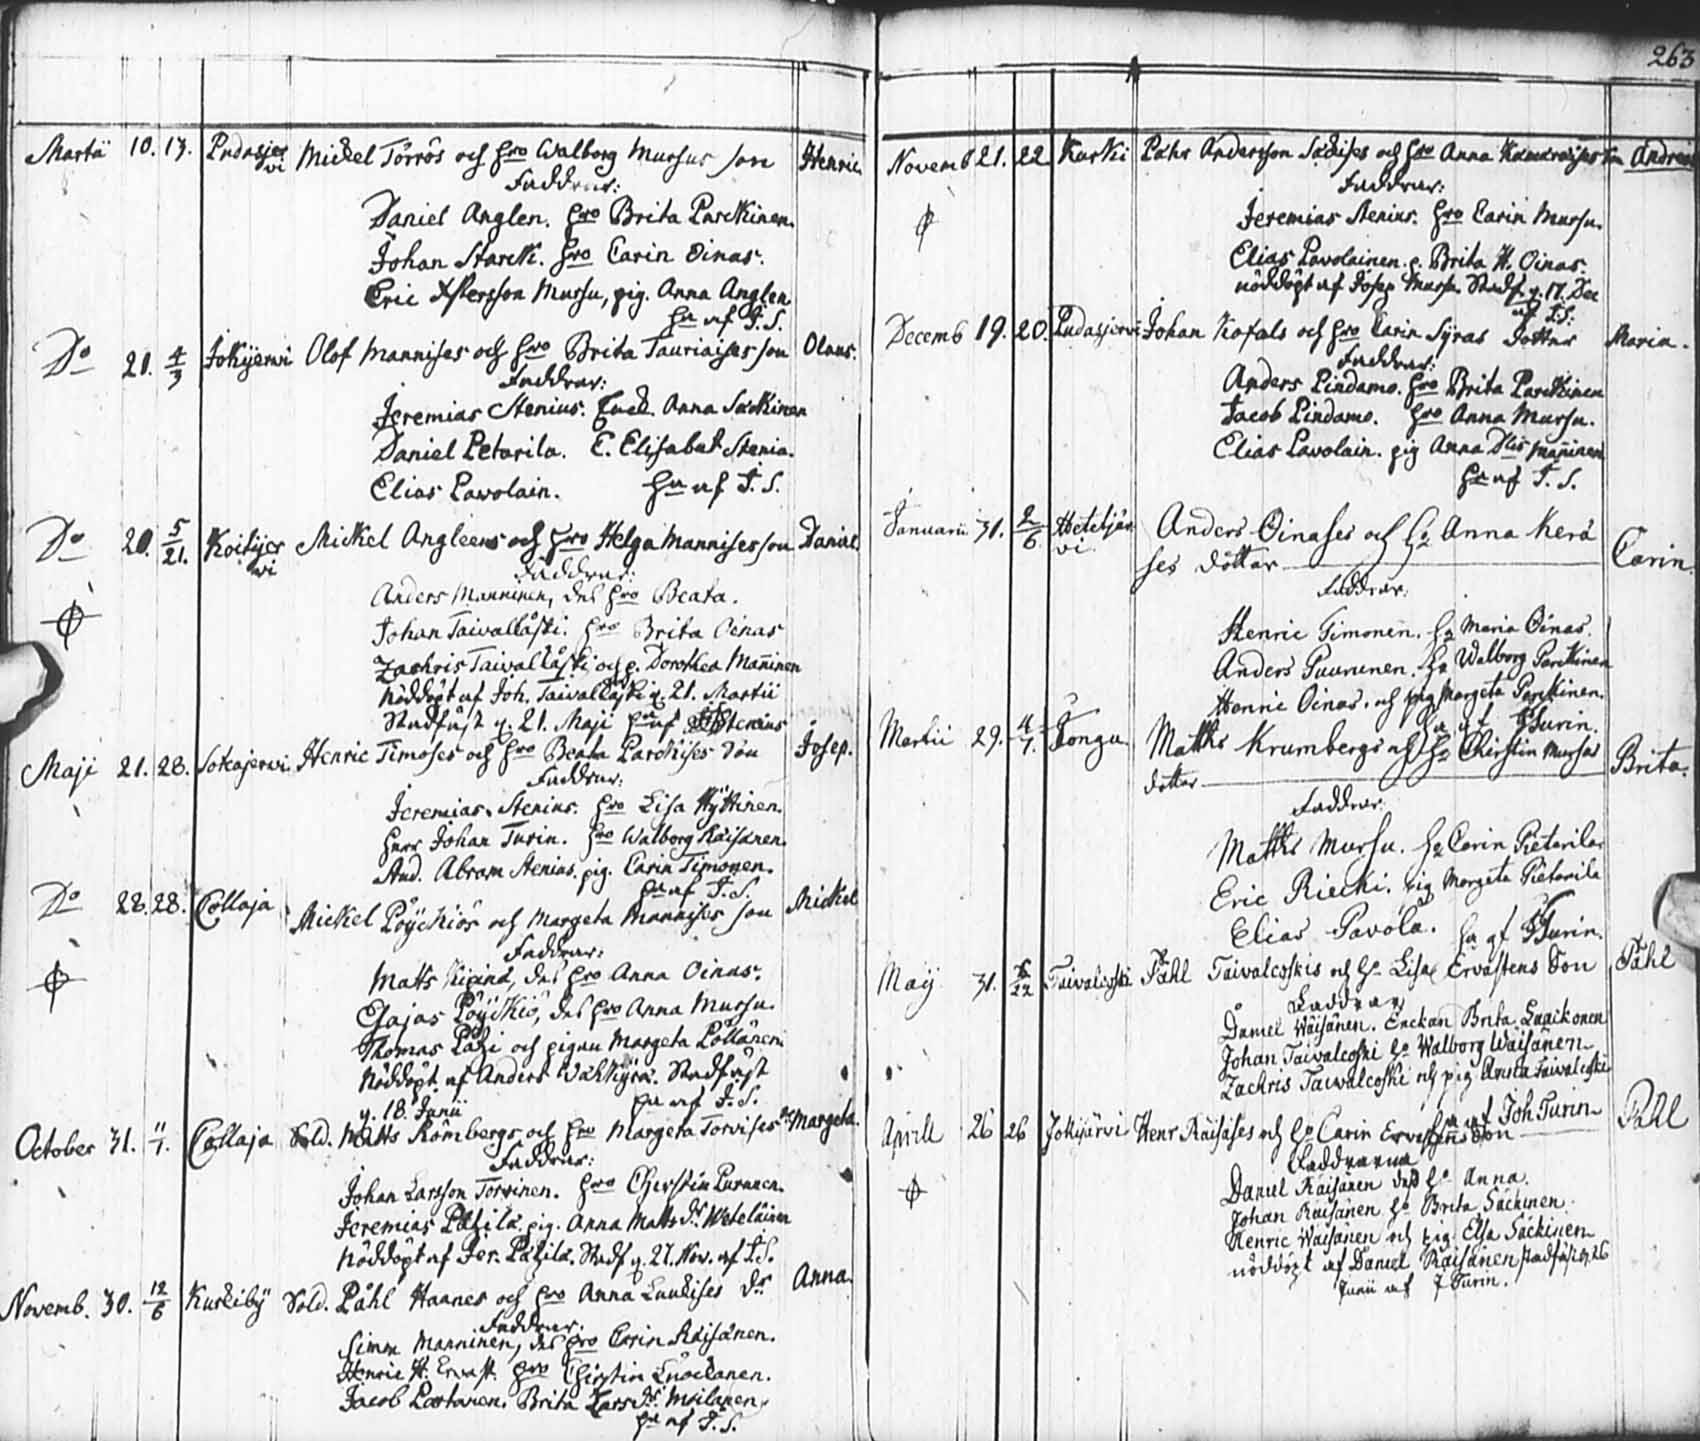 Martii 10. 17. Pudasjer Mickel Törrös och hro Walborg Mursus son Henric.
vi
Faddrar:
Daniel Anglen. hro Brita Parckinen.
Johan Starck. hro Carin Oinas.
Eric Mursu, pig. Anna Anglen
hn af J. S.
Do 21. 4/3 Jokijerwi Olof Mannises och hro Brita Tauriaises son Olaus.
Faddrar:
Jeremias Stenius. Anna Säckinen
Daniel Petarila. E. Elisabet Stenia.
Elias Pawolain. hn af J. S.
Do 20. 5/21. Koitijer Mickel Angleens och hro Helga Mannises son Daniel
wi
Faddrar:
Anders Manninen, des hro Beata.
Johan Taivallåski. hro Brita Oinas
Zachris Taivallåski och p. Dorothea Mañinen
Nöddöpt af Joh. Taivallåski d. 21. Martii
Stadfäst d. 21. Maji hn af J. Stenius
Maji 21. 28. Sotkajerwi Henric Timoses och hro Beata Parckises son Josep.
Faddrar:
Jeremias Stenius. hro Lisa Hyttinen.
Herr Johan Turin. hro Walborg Räisänen.
Stud. Abram Stenius. pig. Carin Timonen.
hn af J. S.
Do 28. 28. Collaja Mickel Pöyckiös och Margeta Mannises son Mickel
Faddrar:
Matts , des hro Anna Oinas.
Esajas Pöyckiö, des hro Anna Mursu.
Thomas och pigan Margeta Pöllänen
Nöddöpt af Anders Wähkyrä. Stadfäst
d. 18. Junii hn af J. S.
October 31. 11/1. Collaja Sold. Matts Römbergs och hro Margeta Torvises dr Margeta.
Faddrar:
Johan Larsson Torvinen. hro Cherstin Puranen.
Jeremias Pätsilä. pig. Anna Matts dr. Weteläinen
Nöddöpt af Jer. Pätsilä. Stadf d. 27. Nov. af J. S.
Novemb. 30. 12/6 Kurkiby Sold. Påhl Haanes och hro Anna Luukises dr Anna.
Faddrar.
Simm Manninen, des hro Carin Räisänen.
Henric H. Ervast. hro Chirstin Luockanen.
Jacob Lootanen. Brita Larsdr. Moilanen,
hn af J. S.
263
Novemb 21. 22 Kurki Påhr Andersson Säckises och hro Anna son Andreas
Faddrar:
Jeremias Stenius. hro Carin Mursu.
Elias Pavolainen. p. Brita H. Oinas.
nöddöpt af Josep Mursu. Stadf. d. 17. Dec
af J. S.
Decemb 19. 20. Pudasjervi Johan Kofals och hro Carin Syras Dotter Maria.
Faddrar:
Anders Lindamo. hro Brita Parckinen
Jacob Lindamo. hro Anna Mursu.
Elias Pawolain. pig Anna Dlis Mañinen
hn af J. S.
Januarii 31. 2/6 Hetetjär Anders Oinases och ho Anna Kerä
vi ses dotter Carin.
Faddrar:
Henric Timonen. ho Maria Oinas.
Anders Puurunen. ho Walborg Parckinen
Henric Oinas. och pig Margeta Parckinen.
hn af J Turin.
Martii 29. 4/7. Jongu Matths Krumbergs och ho Chirstin Mursus
dotter Brita.
Faddrar
Matths Mursu. ho Carin Pietarila
Eric Riecki. pig Margeta Pietarila
Elias Pavola. hn af J Turin.
Maij 31. 6/22 Taivalcoski Påhl Taivalcoskis och ho Lisa Ervastens Son Påhl
Faddrar
Daniel Wäisänen. Enckan Brita Laackonen
Johan Taivalcoski ho Walborg Wäisänen
Zachris Taivalcoski och pig Anna Taivalcoski
hn af Joh Turin
Aprill 26 26 Jokijärvi Henr Räisäses och ho Carin Ervastens Son Påhl
Faddrarna
Daniel Räisänen des ho Anna.
Johan Räisänen ho Brita Säckinen
Henric Wäisänen och pig Elsa Säckinen
nöddöpt af Daniel Räisänen stadfäst d 26
Junii af J Turin.